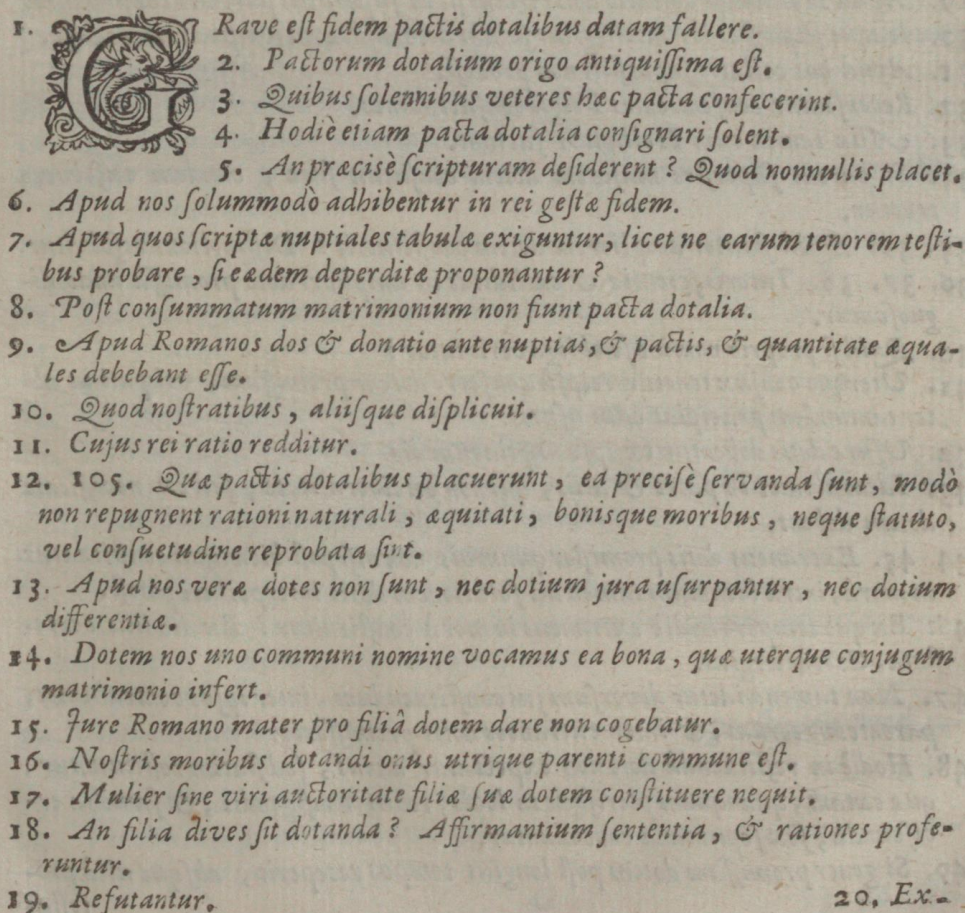 1. GRave est fidem pactis dotalibus datam fallere.
2. Pactorum dotalium origo antiquissima est.
3. Quibus solennibus veteres hæc pacta confecerint.
4. Hodiè etiam pacta dotalia consignari solent.
5. An præcisè scripturam desiderent? Quod nonnullis placet.
6. Apud nos solummodò adhibentur in rei gestæ fidem.
7. Apud quos scriptæ nuptiales tabulæ exiguntur, licet ne earum tenorem testi-
bus probare, si eædem deperditæ proponantur?
8. Post consummatum matrimonium non fiunt pacta dotalia.
9. Apud Romanos dos & donatio ante nuptias, & pactis, & quantitate æqua-
les debebant esse.
10. Quod nostratibus, aliisque displicuit.
11. Cujus rei ratio redditur.
12. 105. Quæ pactis dotalibus placuerunt, ea precisè servanda sunt, modò
non repugnent rationi naturali, æquitati, bonisque moribus, neque statuto,
vel consuetudine reprobata sint.
13. Apud nos veræ dotes non sunt, nec dotium jura usurpantur, nec dotium
differentiæ.
14. Dotem nos uno communi nomine vocamus ea bona, quæ uterque conjugum
matrimonio infert.
15. Jure Romano mater pro filiâ dotem dare non cogebatur.
16. Nostris moribus dotandi onus utrique parenti commune est.
17. Mulier sine viri auctoritate filiæ suæ dotem constituere nequit.
18. An filia dives sit dotanda? Affirmantium sententia, & rationes profe-
runtur.
19. Refutantur.
20. Ex-